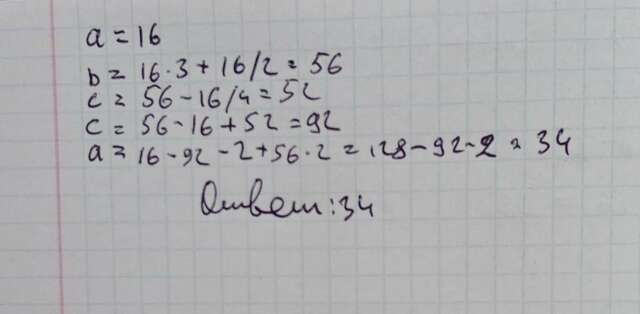 a = 16
b = 16·3 + 16/2 = 56
c = 56 - 16/4 = 52
c = 56 - 16 + 52 = 92
a = 16 - 92 - 2 + 56·2 = 128 - 92 - 2 = 34
Ответ: 34